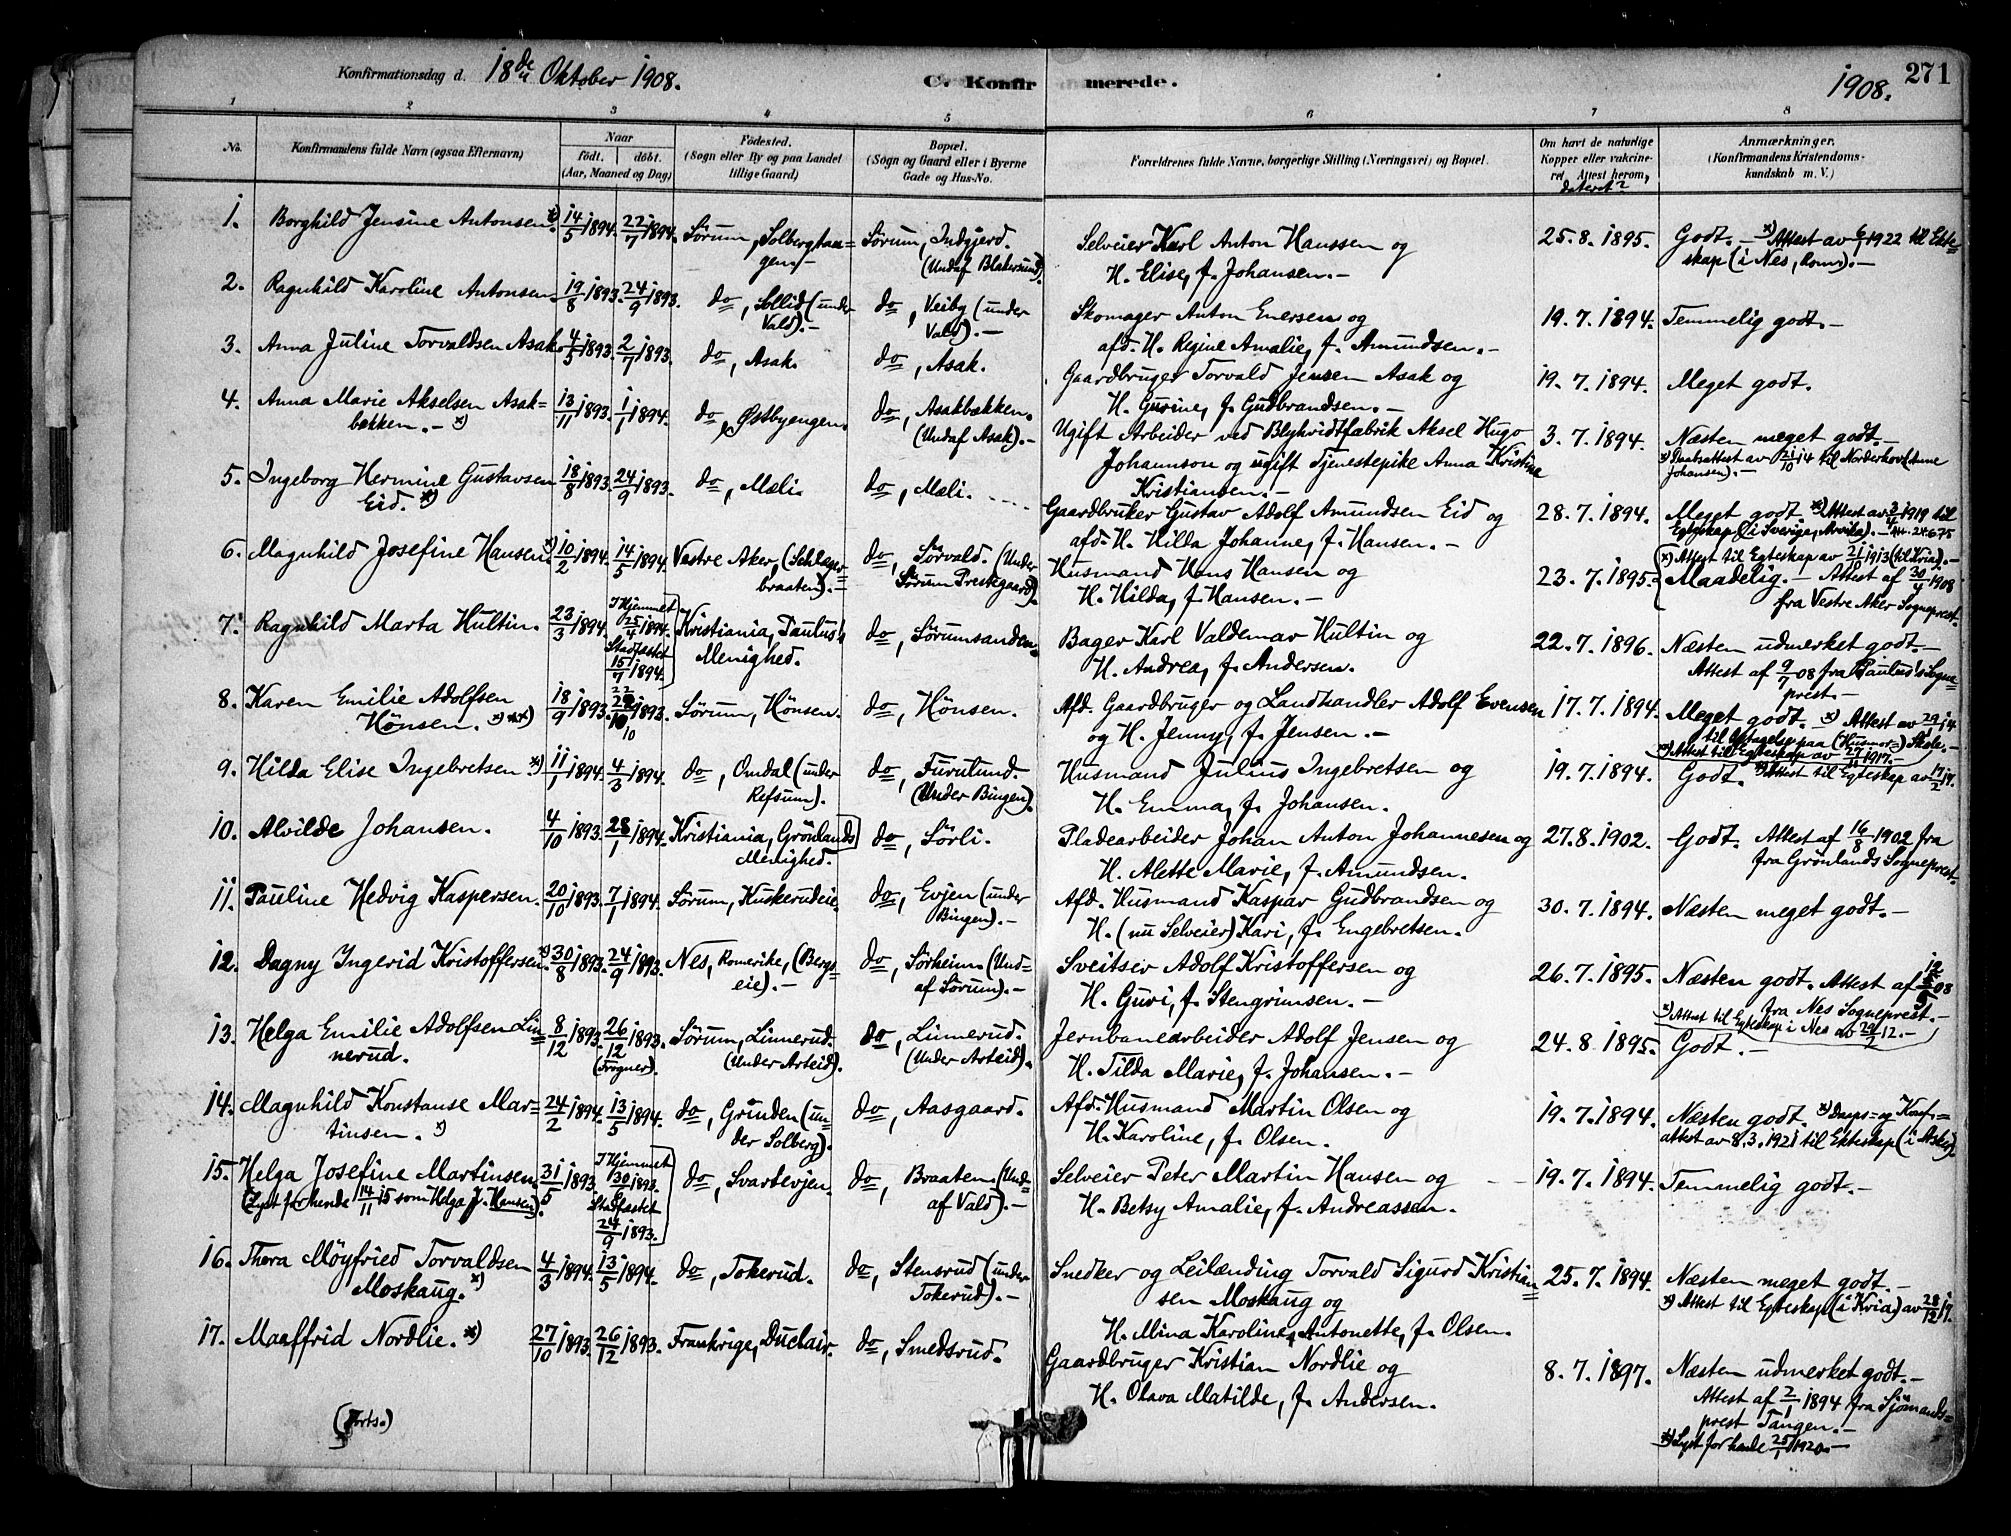 Konfirmationsdag d. 18de Oktober 1908.
C. Konfirmerede.
1908.
271
1 2 3 4 5 6 7 8
No.
Konfirmandens fulde Navn (ogsaa Efternavn)
Naar
födt. döbt.
(Aar, Maaned og Dag)
Födested.
(Sogn eller By og paa Landet
tillige Gaard)
Bopæl.
(Sogn og Gaard eller i Byerne
Gade og Hus-No.
Forældrenes fulde Navne, borgerlige Stilling (Næringsvei) og Bopæl.
Om havt de naturlige
Kopper eller vakcine-
ret. Attest herom,
dateret?
Anmærkninger.
(Konfirmandens Kristendoms-
kundskab m. V.)
1. Borghild Jensine Antonsen. x) 14/5 1894. 22/7 1894. Sörum, Solberghau= Sörum, Indgjerd. Selveier Karl Anton Hanssen og 25.8.1895. Godt. – x) Attest av 6/1 1922 til Ekte=
gen.– (Undaf Blakersund). H. Elise, f. Johansen. – skap (i Nes, Rom.). –
2. Ragnhild Karoline Antonsen. 19/8 1893. 24/9 1893. do, Sollid (under do, Veiby (under Skomager Anton Enersen og 19.7.1894. Temmelig godt. –
Vald). – Vald). – afd. H. Regine Amalie, f. Amundsen. –
3. Anna Juline Torvaldsen Asak. 4/5 1893. 2/7 1893. do, Asak. do, Asak. Gaardbruger Torvald Jensen Asak og 19.7.1894. Meget godt.
H. Gurine, f. Gudbrandsen. –
4. Anna Marie Akselsen Asak= 13/11 1893. 1/1 1894. do, Østbyengen. do, Asakbækken. Ugift Arbeider ved Blyhvidtfabrik Aksel Hugo 3.7.1894. Næsten meget godt. –
bækken. – x) (Undaf Asak). – Johannson og ugift Tjenestepike Anna Kristine x) Daabsattest av 21/10 14 til Norderhov (Anne
Kristiansen. – Johansen). –
5. Ingeborg Hermine Gustavsen 18/8 1893. 24/9 1893. do, Mæli. do, Mæli. Gaardbruker Gustav Adolf Amundsen Eid og 28.7.1894. Meget godt x) Attest av 3/4 1919 til
Eid. x) afd. H. Hilda Johanne, f. Hansen. – Egteskap (i Sverige, Arvika). –
6. Magnhild Josefine Hansen. x) 10/2 1894. 14/5 1894. Vestre Aker, (Schlager= do, Sörvald. (Under Husmand Hans Hansen og 23.7.1895. x) Attest til Egteskap av 21/10 1913 (til Kria). –
braaten). – Sörum Prestegaard). H. Hilda, f. Hansen. – Maadelig. – Attest af 30/4 1908
fra Vestre Aker Sogneprest.
7. Ragnhild Marta Hultin. 23/3 1894. I Hjemmet 25/4 1894. Stadfæstet 15/7 1894. Kristiania, Paulus's do, Sörumsanden. Bager Karl Valdemar Hultin og 22.7.1896. Næsten udmerket godt. –
Menighed. H. Andrea, f. Andersen. Attest af 9/7 08 fra Paulus's Sogne=
prest. –
8. Karen Emilie Adolfsen 18/9 1893. 22/10 1893. Sörum, Hönsen. do, Hönsen. Afd. Gaardbruger og Landhandler Adolf Evensen 17.7.1894. Meget godt. – x) Attest av 29/1 14
Hönsen. x) xx) og H. Jenny, f. Jensen. – til Optagelse paa (Husmor=) Skole. –
xx) Attest til Egteskap av 27/11 1917. –
9. Hilda Elise Ingebretsen x) 11/1 1894. 4/3 1894. do, Omdal (under do, Furulund. Husmand Julius Ingebretsen og 19.7.1894. Godt. x) Attest til Egteskap av 17/2 17.
Refsum). (Under Bingen). H. Emma, f. Johansen.
10. Alvilde Johansen. 4/10 1893. 28/1 1894. Kristiania, Grönlands do, Sörli. Pladearbeider Johan Anton Johannesen og 27.8.1902. Godt. Attest af 16/8 1902 fra
Menighed. H. Alette Marie, f. Amundsen. fra Grönlands Sogneprest.
11. Pauline Hedvig Kaspersen. 20/10 1893. 7/1 1894. Sörum, Huskerudeie. do, Evjen (under Afd. Husmand Kaspar Gudbrandsen og 30.7.1894. Næsten meget godt. –
Bingen). – H. (nu Selveier) Kari, f. Engebretsen.
12. Dagny Ingerid Kristoffersen. x) 30/8 1893. 24/9 1893. Nes, Romerike, (Bergs= do, Sörheim. (Und= Sveitser Adolf Kristoffersen og 26.7.1895. Næsten godt. Attest af 12/9 08
eie). – af Sörum). – H. Guri, f. Stengrimsen. – fra Nes Sogneprest. –
x) Attest til Egteskap i Nes av 29/2 12. –
13. Helga Emilie Adolfsen Lin= 8/12 1893. 26/12 1893. Sörum, Linnerud. do, Linnerud. Jernbanearbeider Adolf Jensen og 24.8.1895. Godt. –
nerud. (Frogner). (Under Arteid). (Under Arteid). H. Tilda Marie, f. Johansen. –
14. Magnhild Konstanse Mar= 24/2 1894. 13/5 1894. do, Grinden (un= do, Aasgaard. Afd. Husmand Martin Olsen og 19.7.1894. Næsten godt. x) Daaps= og Konf.=
tinsen. x) der Solberg). H. Karoline, f. Olsen. attest av 8.3.1921 til Ekteskap (i Asker).
15. Helga Josefine Martinsen. 31/5 1893. I Hjemmet 1893. Stadfæstet 24/9 1893. do, Svartevjen. do, Braaten. (Und= Selveier Peter Martin Hansen og 19.7.1894. Temmelig godt. –
(Lyst for hende 14/11 15 som Helga J. Hansen). af Vald). – H. Betsy Amalie, f. Andreassen.
16. Thora Möyfried Torvaldsen 4/3 1894. 13/5 1894. do, Tokerud. do, Stensrud (under Snedker og Leilænding Torvald Sigurd Kristian= 25.7.1894. Næsten meget godt. –
Moskaug. x) Tokerud). – sen Moskaug og x) Attest til Egteskap (i Kria) av 28/12 17.
H. Mina Karoline Antonette, f. Olsen.
17. Maalfrid Nordlie. x) 27/10 1893. 26/12 1893. Frankrige, Duclair. do, Smedsrud. Gaardbruger Kristian Nordlie og 8.7.1897. Næsten udmerket godt. –
H. Olava Matilde, f. Andersen. Attest af 2/1 1894 fra Sjömands=
prest Tangen. –
x) Lyst for hende 25/1 1920. –
(Forts.)